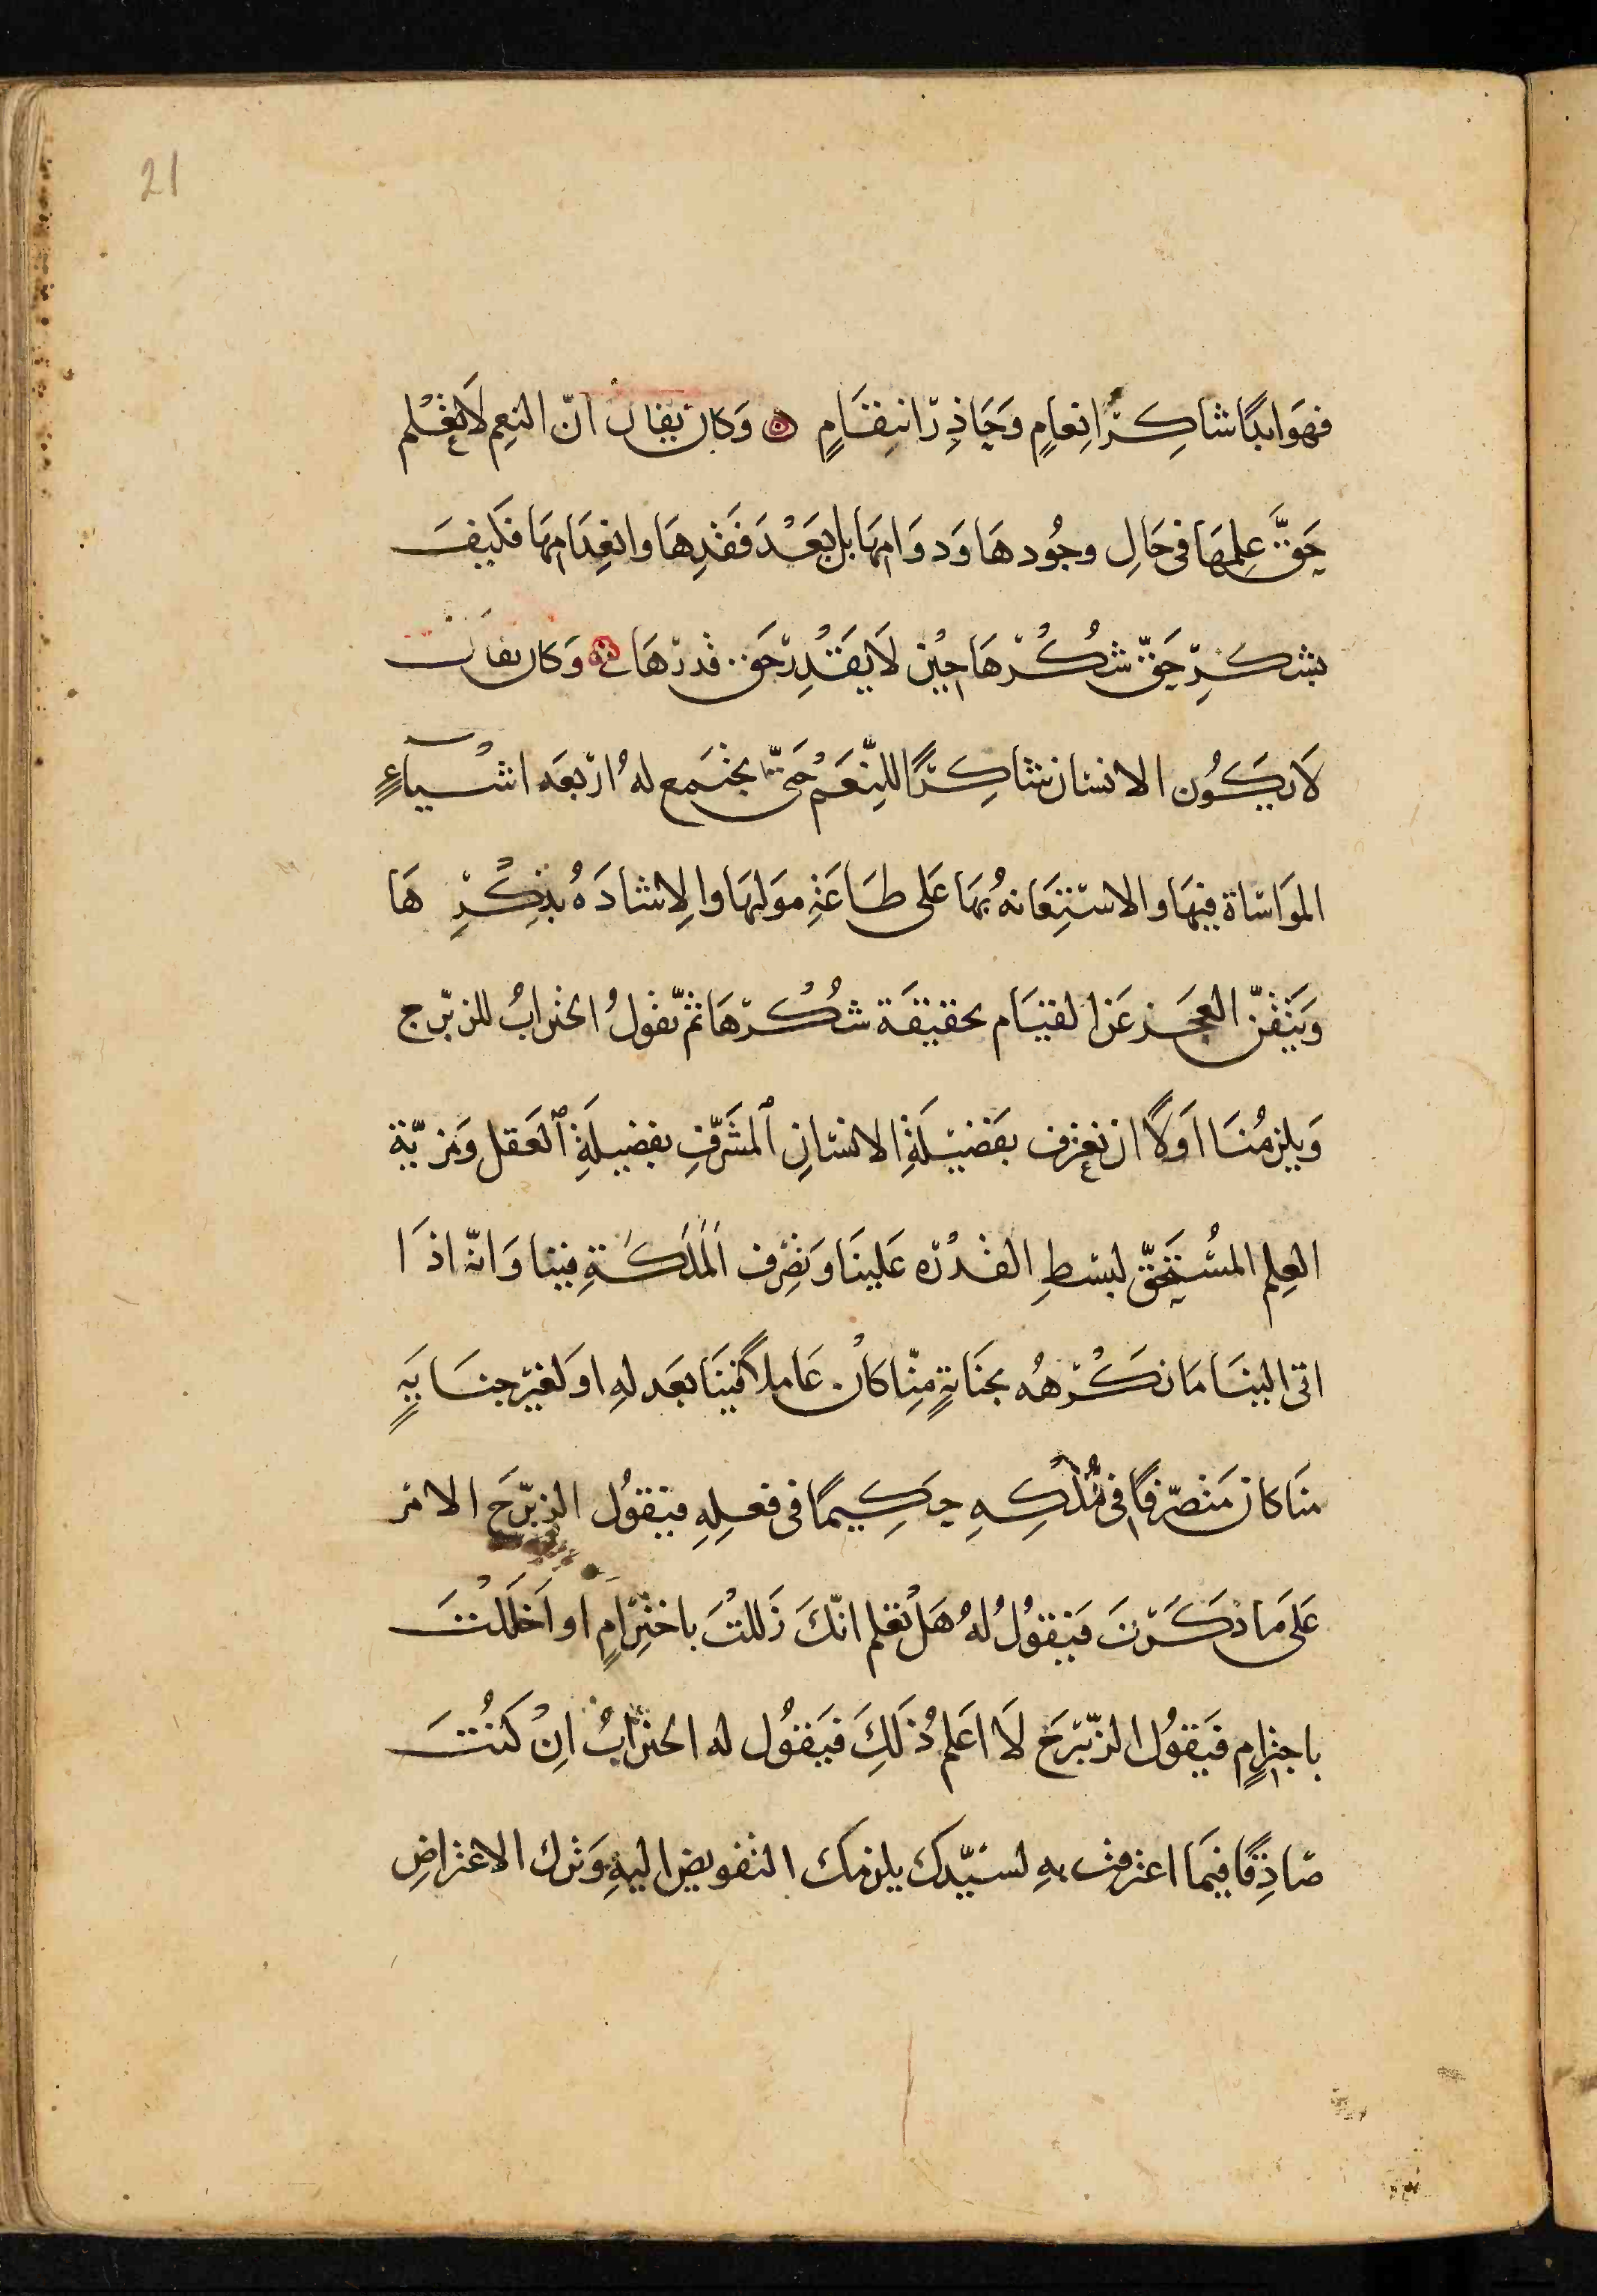 21
فهَوَ ابدًا شاكِرُ انِعامٍ وَحَاذِرُ انتِقَامٍ ۞ وَكان يقال انّ النعِم لَا تعْلم
حَقَّ عِلمِهَا فى حَالِ وجُودهَا وَدوَامِهَا بل بَعَدْ فَقْدِهَا وانعِدَامِهَا فكَيفَ
يشكرِ حَقّ شُكُرْهَا حِيْن لَا يَقَدُرِ حَقّ قدرهَا ۞ وَكان يقال
لَا يَكُون الانسان شاكِرًا للنِّعَمْ حَتّى يجتَمع لهُ اربَعَه اشْيَاءٍ
المَوَاسَاة فيهَا والاستِعَانهُ بهَا عَلى طَاعَةِ مَولِهَا والِاشادَهُ بذِكْرِ هَا
وَيَتَقّنْ العَجَز عَن القيَام بحقيقَة شُكُرْهَا ثمّ يقَولُ الخنزابُ للزبّرج
وَيلزمُنَا اوَلًا ان نعترف بفَضيْلَةِ الانسَانِ المشَرّفِ بفضيلَةِ العَقل وَمزيّة
العِلم المسُتَحَقّ لبسَطِ القدْرَه عَلينَا وَتصَرّف المَلَكَةِ فينا وَانّه اذَا
اتى الينَا مَا نَكْرَهُه بجَنَايَةٍ مِنّا كانْ عَاملًا فينَا بعَدلهِ او لَغيّر جنَايَةٍ
منَا كان مَتصَرّفًا فى مُلْكِهِ حِكِيمًا فى فعلِهِ فيَقوُل الزبّرَج الامر
عَلىَ مَا ذكَرَتَ فيَقوُلُ لهُ هَلْ تعْلم انّكَ زَللتْ باختِرَامٍ او اَخلَلْتَ
باجترامٍ فيَقوُل الزّبْرَج لَا اعَلمُ ذَلِكَ فيَقوُل له الخنزابُ انِ كنُتَ
صَادِقًا فيَما اعترفت بهِ لسَيّدك يلزمك التفويض اليهِ وَترك الاعتراضِ